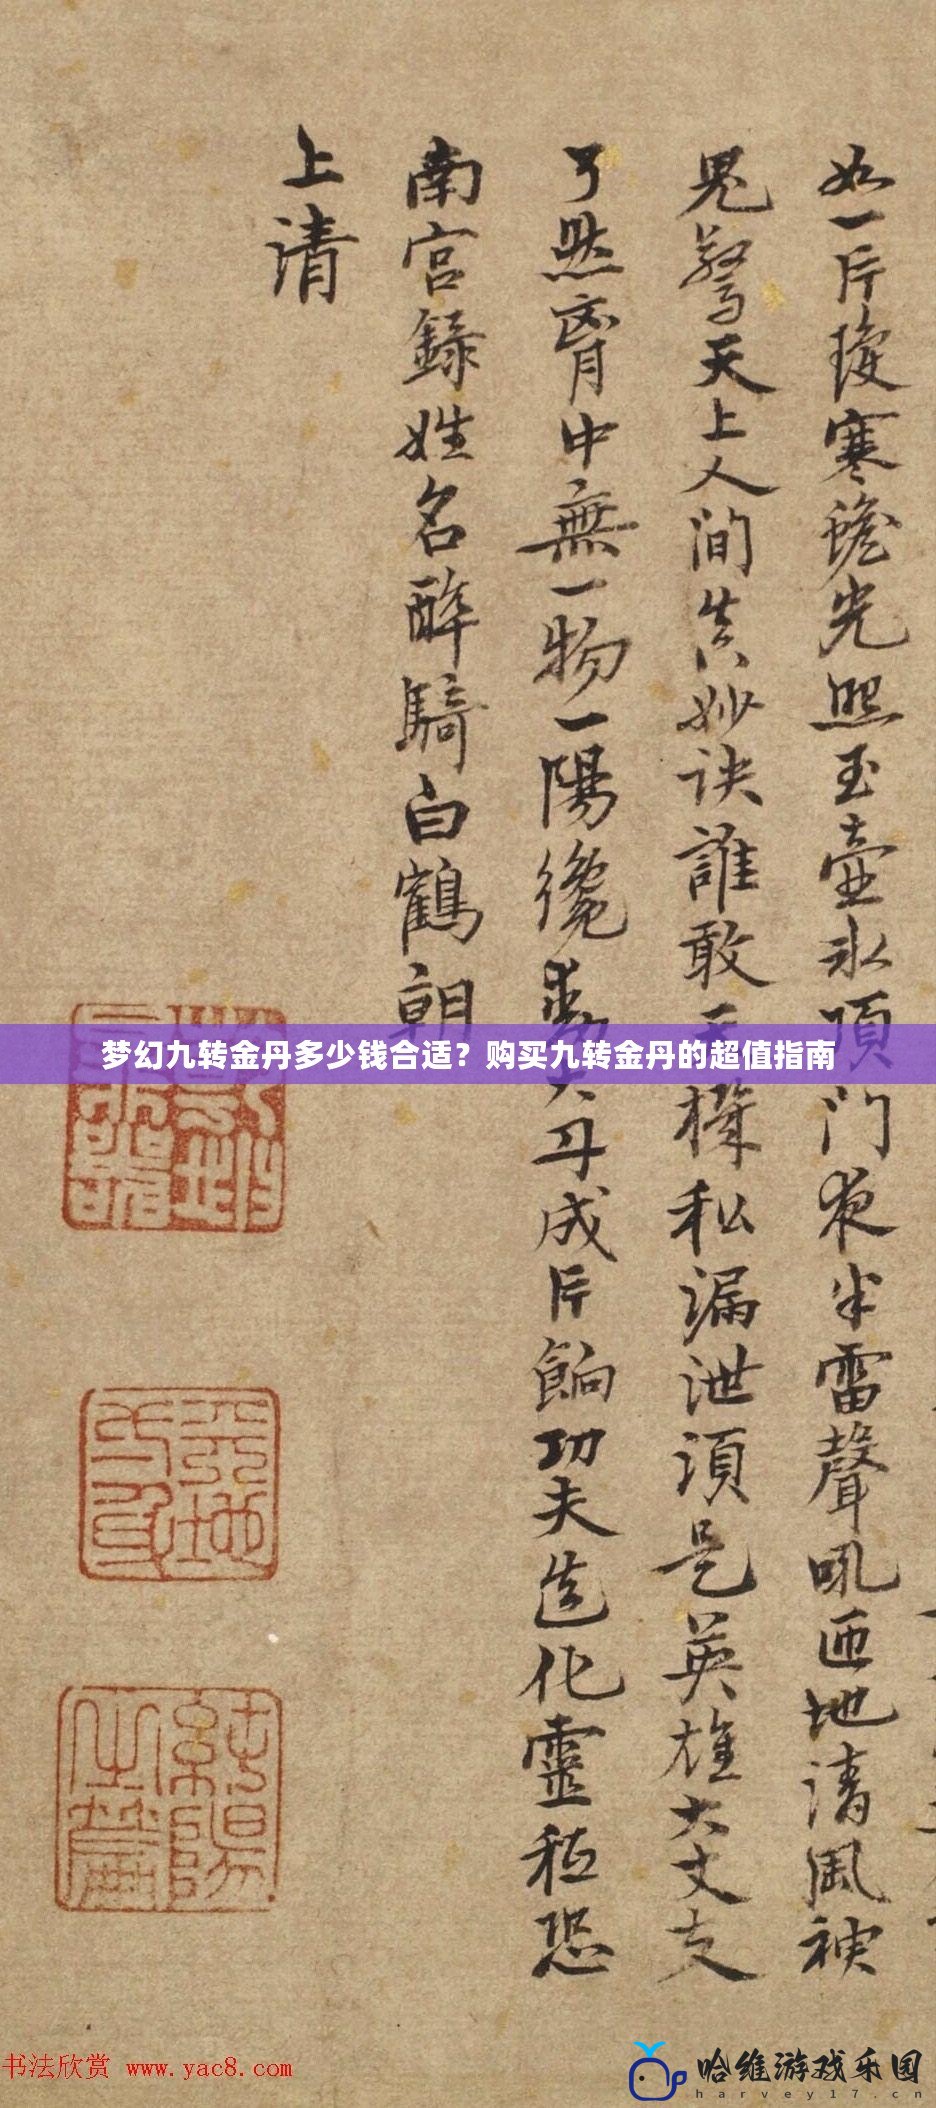 如一片瓊寒蟾光照玉壺冰頂門夜半雷聲吼匝地清風神
鬼驚天上人間真妙訣誰敢天機私漏泄須是英雄大丈夫
了然胷中無一物一陽纔動大丹成片餉功夫造化靈秪恐
南宫録姓名醉騎白鶴朝
上清
梦幻九转金丹多少钱合适？购买九转金丹的超值指南
純陽
书法欣赏 www.yac8.com
哈维游戏乐园
harvey17.cn